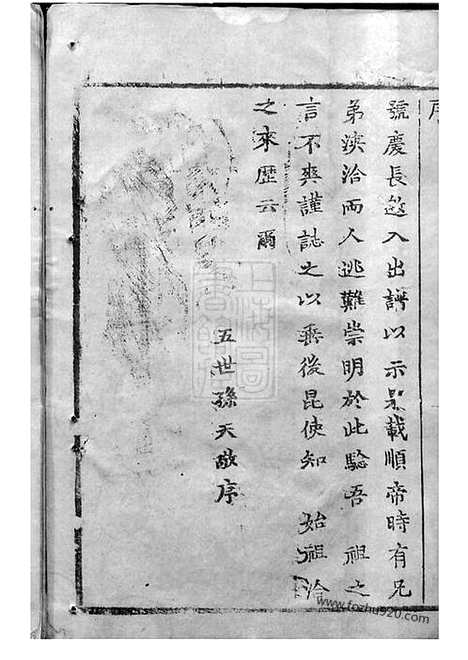 序
號慶長邀入出譜以示果載順帝時有兄
弟渶洽兩人逃難崇明於此驗吾 祖之
言不爽謹誌之以垂後昆使知 始祖洽
之來歷云爾
五世孫天敬序
上海圖
書館藏
www.fozhu920.com